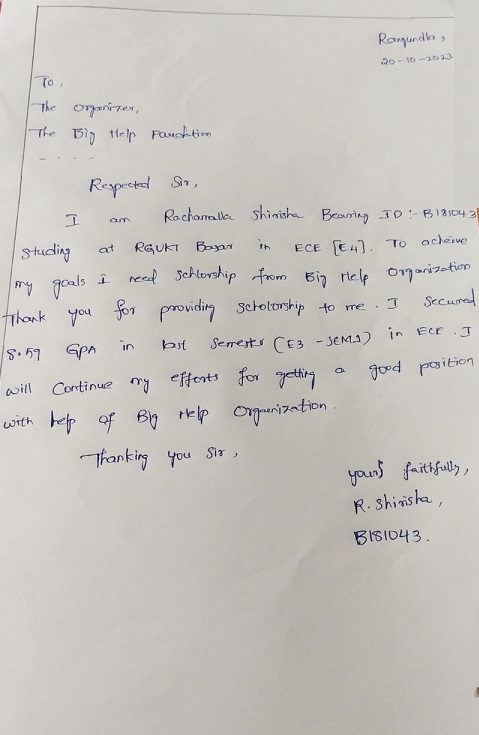 Rangundla,
20-10-2023
To,
The Organizer,
The Big Help Foundation
- - - -
Respected Sir,
I am Rachamalla Shirisha Bearing ID :- B181043
Studing at RGUKT Basar in ECE [E4]. To acheive
my goals i need Schlorship from Big Help Organization
Thank you for providing Scholorship to me. I Secured
8.59 GPA in last Semester (E3 - SEM1) in ECE. I
will Continue my efforts for getting a good position
with help of Big Help Organization.
Thanking you Sir,
yours faithfully,
R. Shirisha,
B181043.